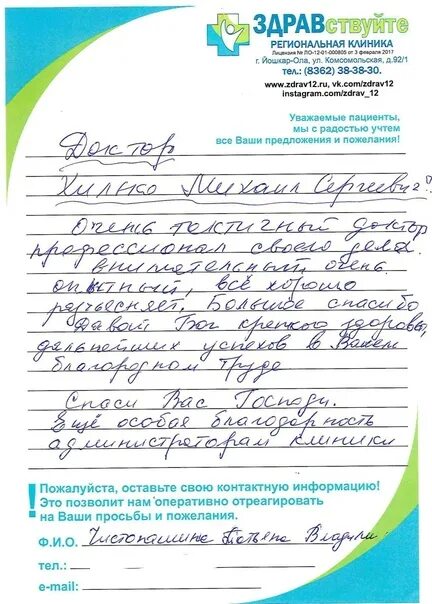 ЗДРАВствуйте
РЕГИОНАЛЬНАЯ КЛИНИКА
Лицензия № ЛО-12-01-000805 от 3 февраля 2017
г. Йошкар-Ола, ул. Комсомольская, д.92/1
тел.: (8362) 38-38-30.
www.zdrav12.ru, vk.com/zdrav12
instagram.com/zdrav_12
Уважаемые пациенты,
мы с радостью учтем
все Ваши предложения и пожелания!
Доктор
Хилько Михаил Сергеевич!
Очень тактичный доктор
профессионал своего дела
внимательный, очень
опытный, всё хорошо
разъясняет, Большое спасибо
Давай Бог крепкого здоровья,
дальнейших успехов в Вашем
благородном труде
Спаси Вас Господи.
Ещё особая благодарность
администраторам клиники
! Пожалуйста, оставьте свою контактную информацию!
Это позволит нам оперативно отреагировать
на Ваши просьбы и пожелания.
Ф.И.О. Чистопашина Татьяна
тел.:
e-mail: